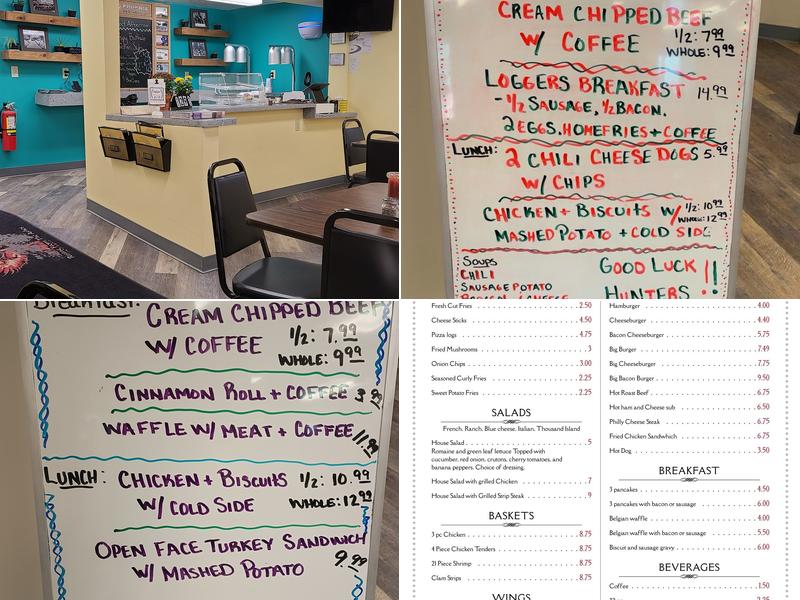 CREAM CHIPPED BEEF
W/ COFFEE
1/2: 7.99
WHOLE: 9.99
LOGGERS BREAKFAST 14.99
- 1/2 SAUSAGE, 1/2 BACON,
2 EGGS, HOMEFRIES + COFFEE
LUNCH: 2 CHILI CHEESE DOGS 5.99
W/ CHIPS
CHICKEN + BISCUITS W/
1/2: 10.99
WHOLE: 12.99
MASHED POTATO + COLD SIDE
SOUPS
CHILI
SAUSAGE POTATO
GOOD LUCK
HUNTERS !!
Breakfast:
CREAM CHIPPED BEEF
W/ COFFEE
1/2: 7.99
WHOLE: 9.99
CINNAMON ROLL + COFFEE 3.99
WAFFLE W/ MEAT + COFFEE
LUNCH: CHICKEN + BISCUITS 1/2: 10.99
W/ COLD SIDE WHOLE: 12.99
OPEN FACE TURKEY SANDWICH
W/ MASHED POTATO 9.99
Fresh Cut Fries 2.50
Cheese Sticks 4.50
Pizza logs 4.75
Fried Mushrooms 3
Onion Chips 3.00
Seasoned Curly Fries 2.25
Sweet Potato Fries 2.25
SALADS
French, Ranch, Blue cheese, Italian, Thousand Island
House Salad 5
Romaine and green leaf lettuce Topped with
cucumber, red onion, crutons, cherry tomatoes, and
banana peppers. Choice of dressing.
House Salad with grilled Chicken 7
House Salad with Grilled Strip Steak 9
BASKETS
3 pc Chicken 8.75
4 Piece Chicken Tenders 8.75
21 Piece Shrimp 8.75
Clam Strips 8.75
WINGS
Hamburger 4.00
Cheeseburger 4.40
Bacon Cheeseburger 5.75
Big Burger 7.49
Big Cheeseburger 7.75
Big Bacon Burger 9.50
Hot Roast Beef 6.75
Hot ham and Cheese sub 6.50
Philly Cheese Steak 6.75
Fried Chicken Sandwhich 6.75
Hot Dog 3.50
BREAKFAST
3 pancakes 4.50
3 pancakes with bacon or sausage 6.00
Belgian waffle 4.00
Belgian waffle with bacon or sausage 5.50
Biscuit and sausage gravy 6.00
BEVERAGES
Coffee 1.50